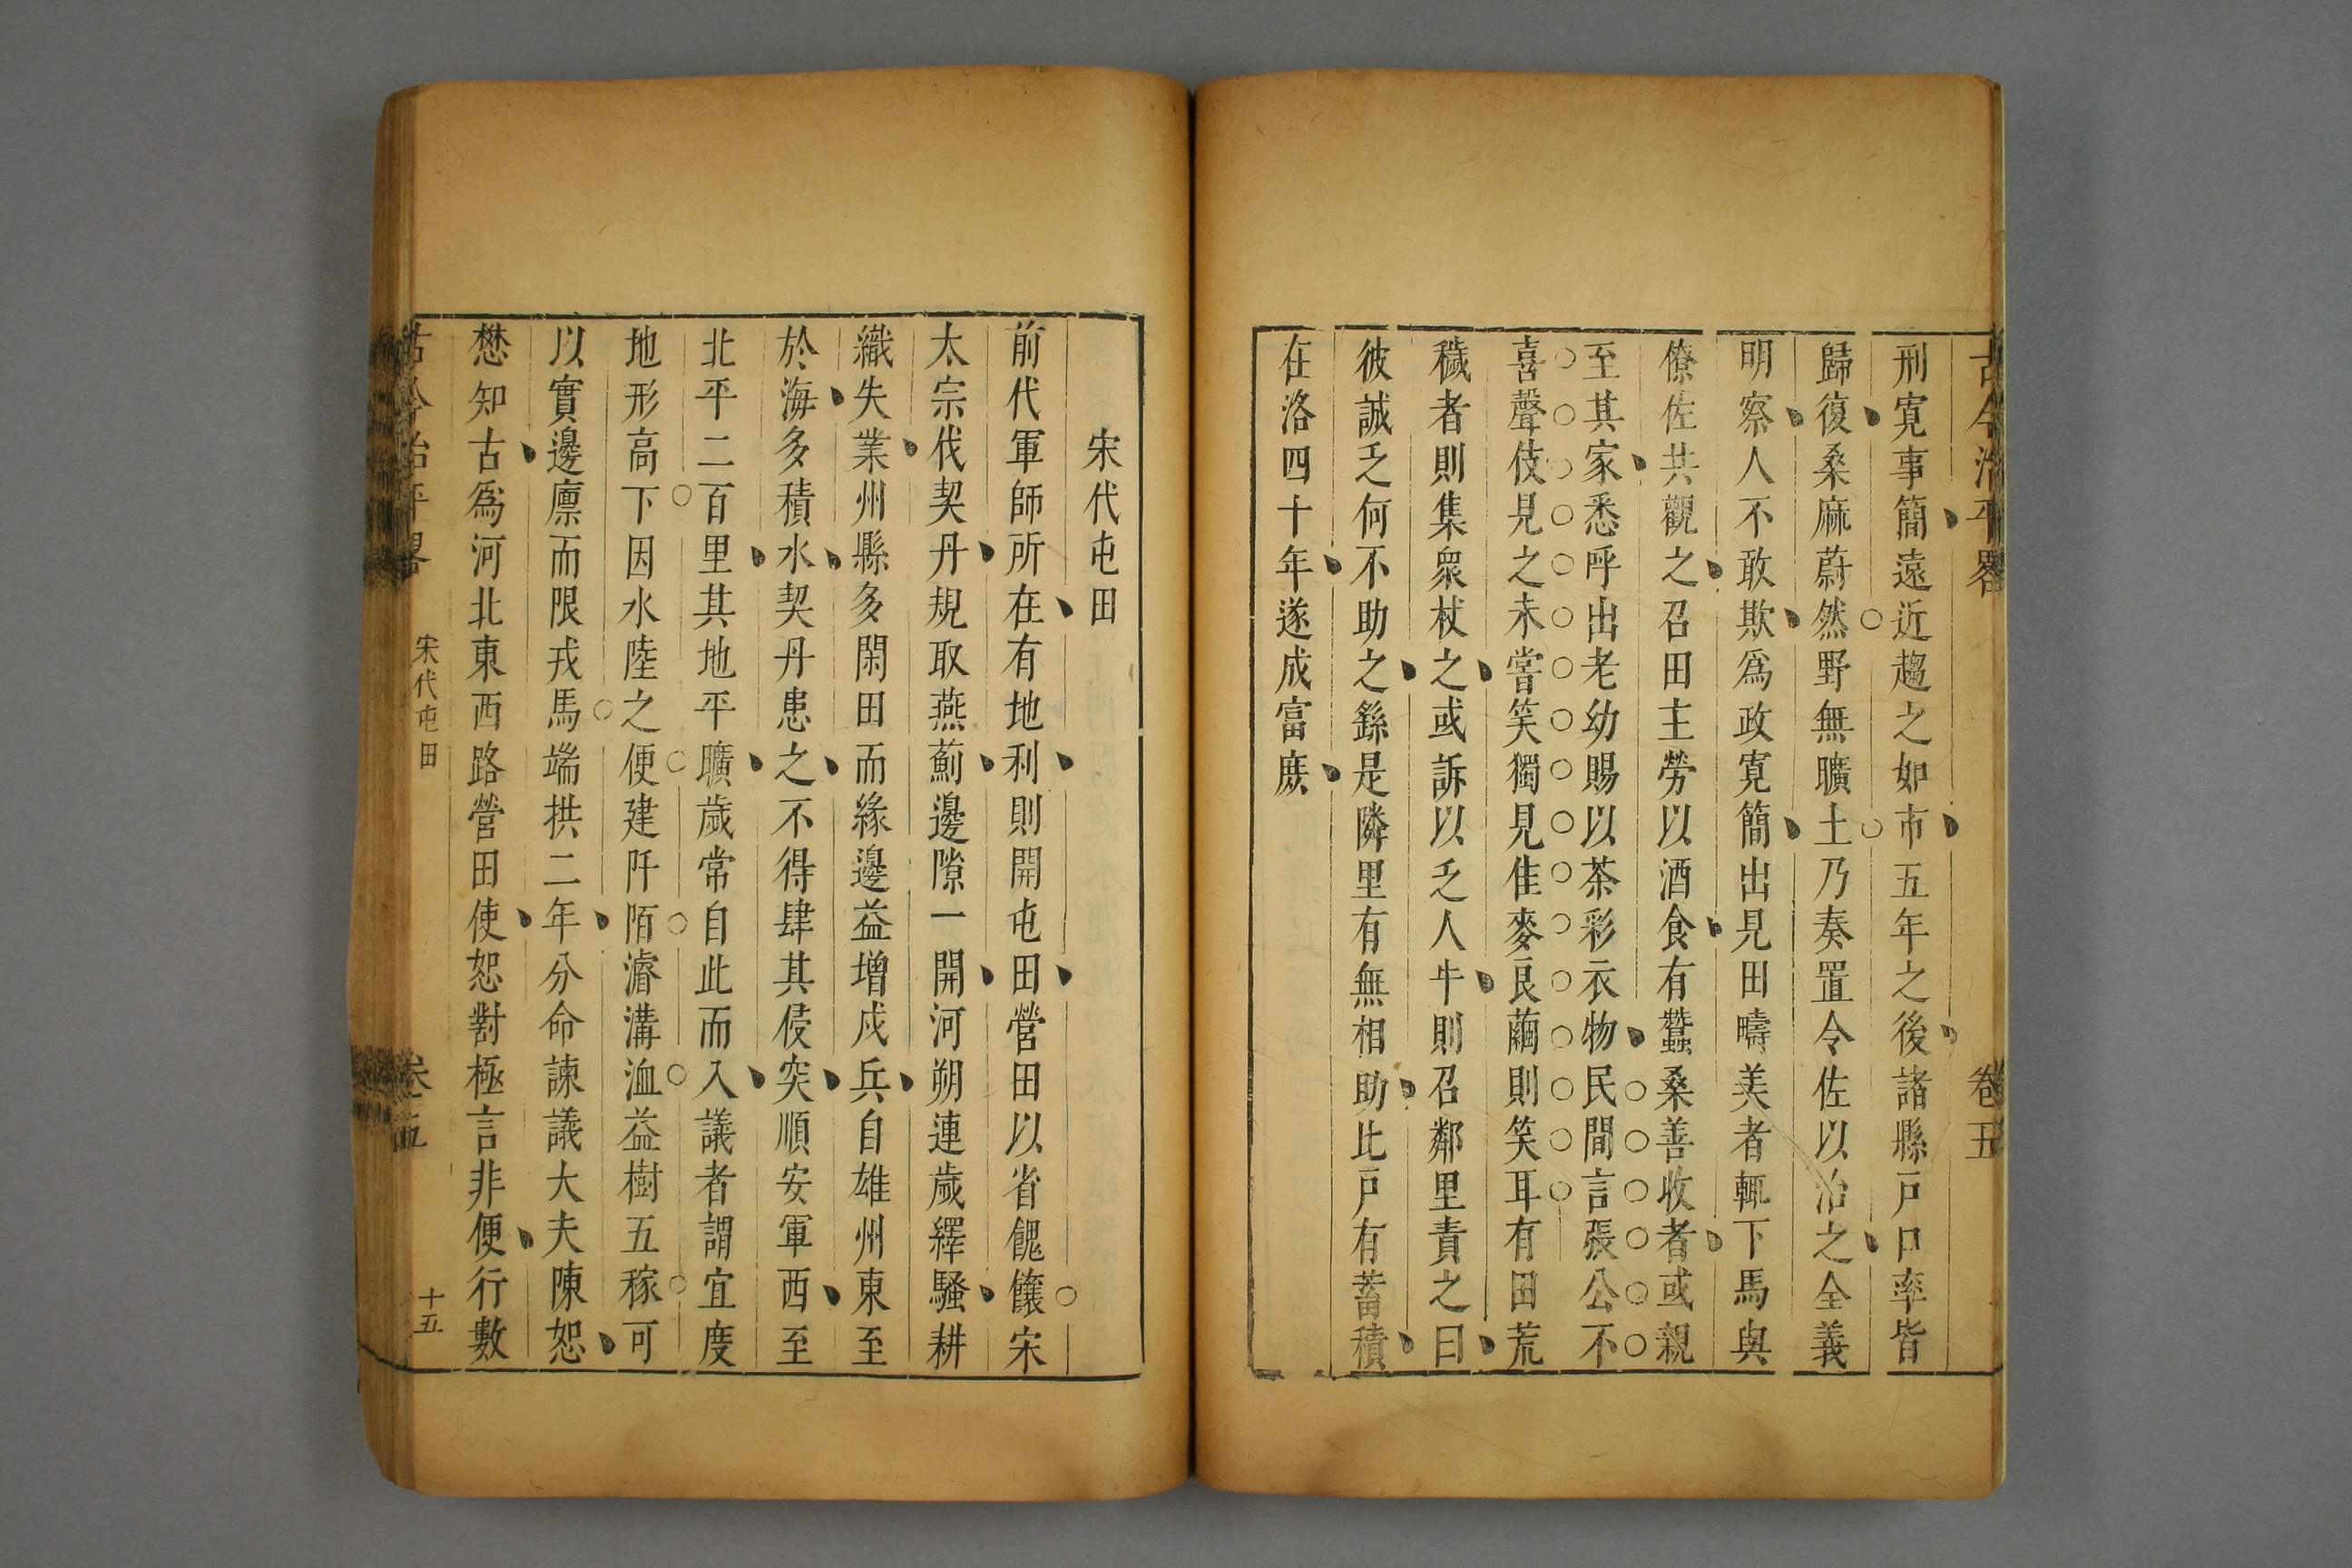 古今治平畧 卷五
刑寛事簡遠近趨之如市五年之後諸縣戸口率皆
歸復桑麻蔚然野無曠土乃奏置令佐以治之全義
明察人不敢欺爲政寛簡出見田疇美者輒下馬與
僚佐共觀之召田主勞以酒食有蠶桑善收者或親
至其家悉呼出老幼賜以茶彩衣物民間言張公不
喜聲伎見之未嘗笑獨見佳麥良繭則笑耳有田荒
穢者則集衆杖之或訴以乏人牛則召鄰里責之曰
彼誠乏何不助之繇是隣里有無相助比戸有蓄積
在洛四十年遂成富庶
宋代屯田
前代軍師所在有地利則開屯田營田以省餽饟宋
太宗伐契丹規取燕薊邊隙一開河朔連歲繹騷耕
織失業州縣多閑田而緣邊益增戍兵自雄州東至
於海多積水契丹患之不得肆其侵突順安軍西至
北平二百里其地平曠歲常自此而入議者謂宜度
地形高下因水陸之便建阡陌濬溝洫益樹五稼可
以實邊廩而限戎馬端拱二年分命諫議大夫陳恕
樊知古爲河北東西路營田使恕對極言非便行數
古今治平畧 宋代屯田 卷五 十五